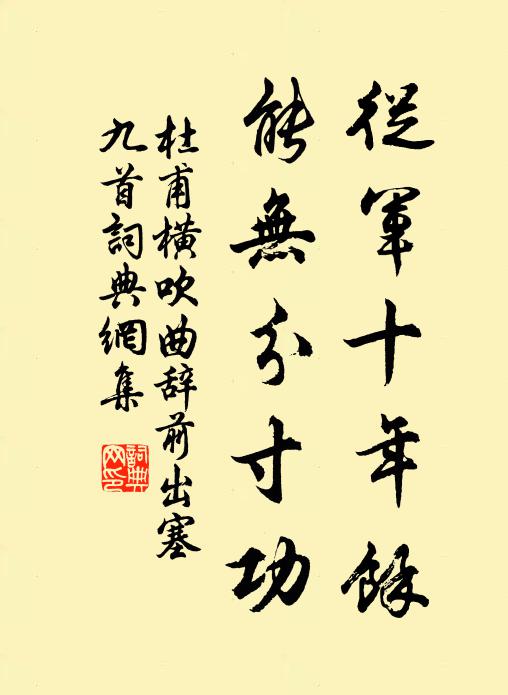 從軍十年餘
能無分寸功
杜甫橫吹曲辞前出塞
九首詞典網集
詞典
网印